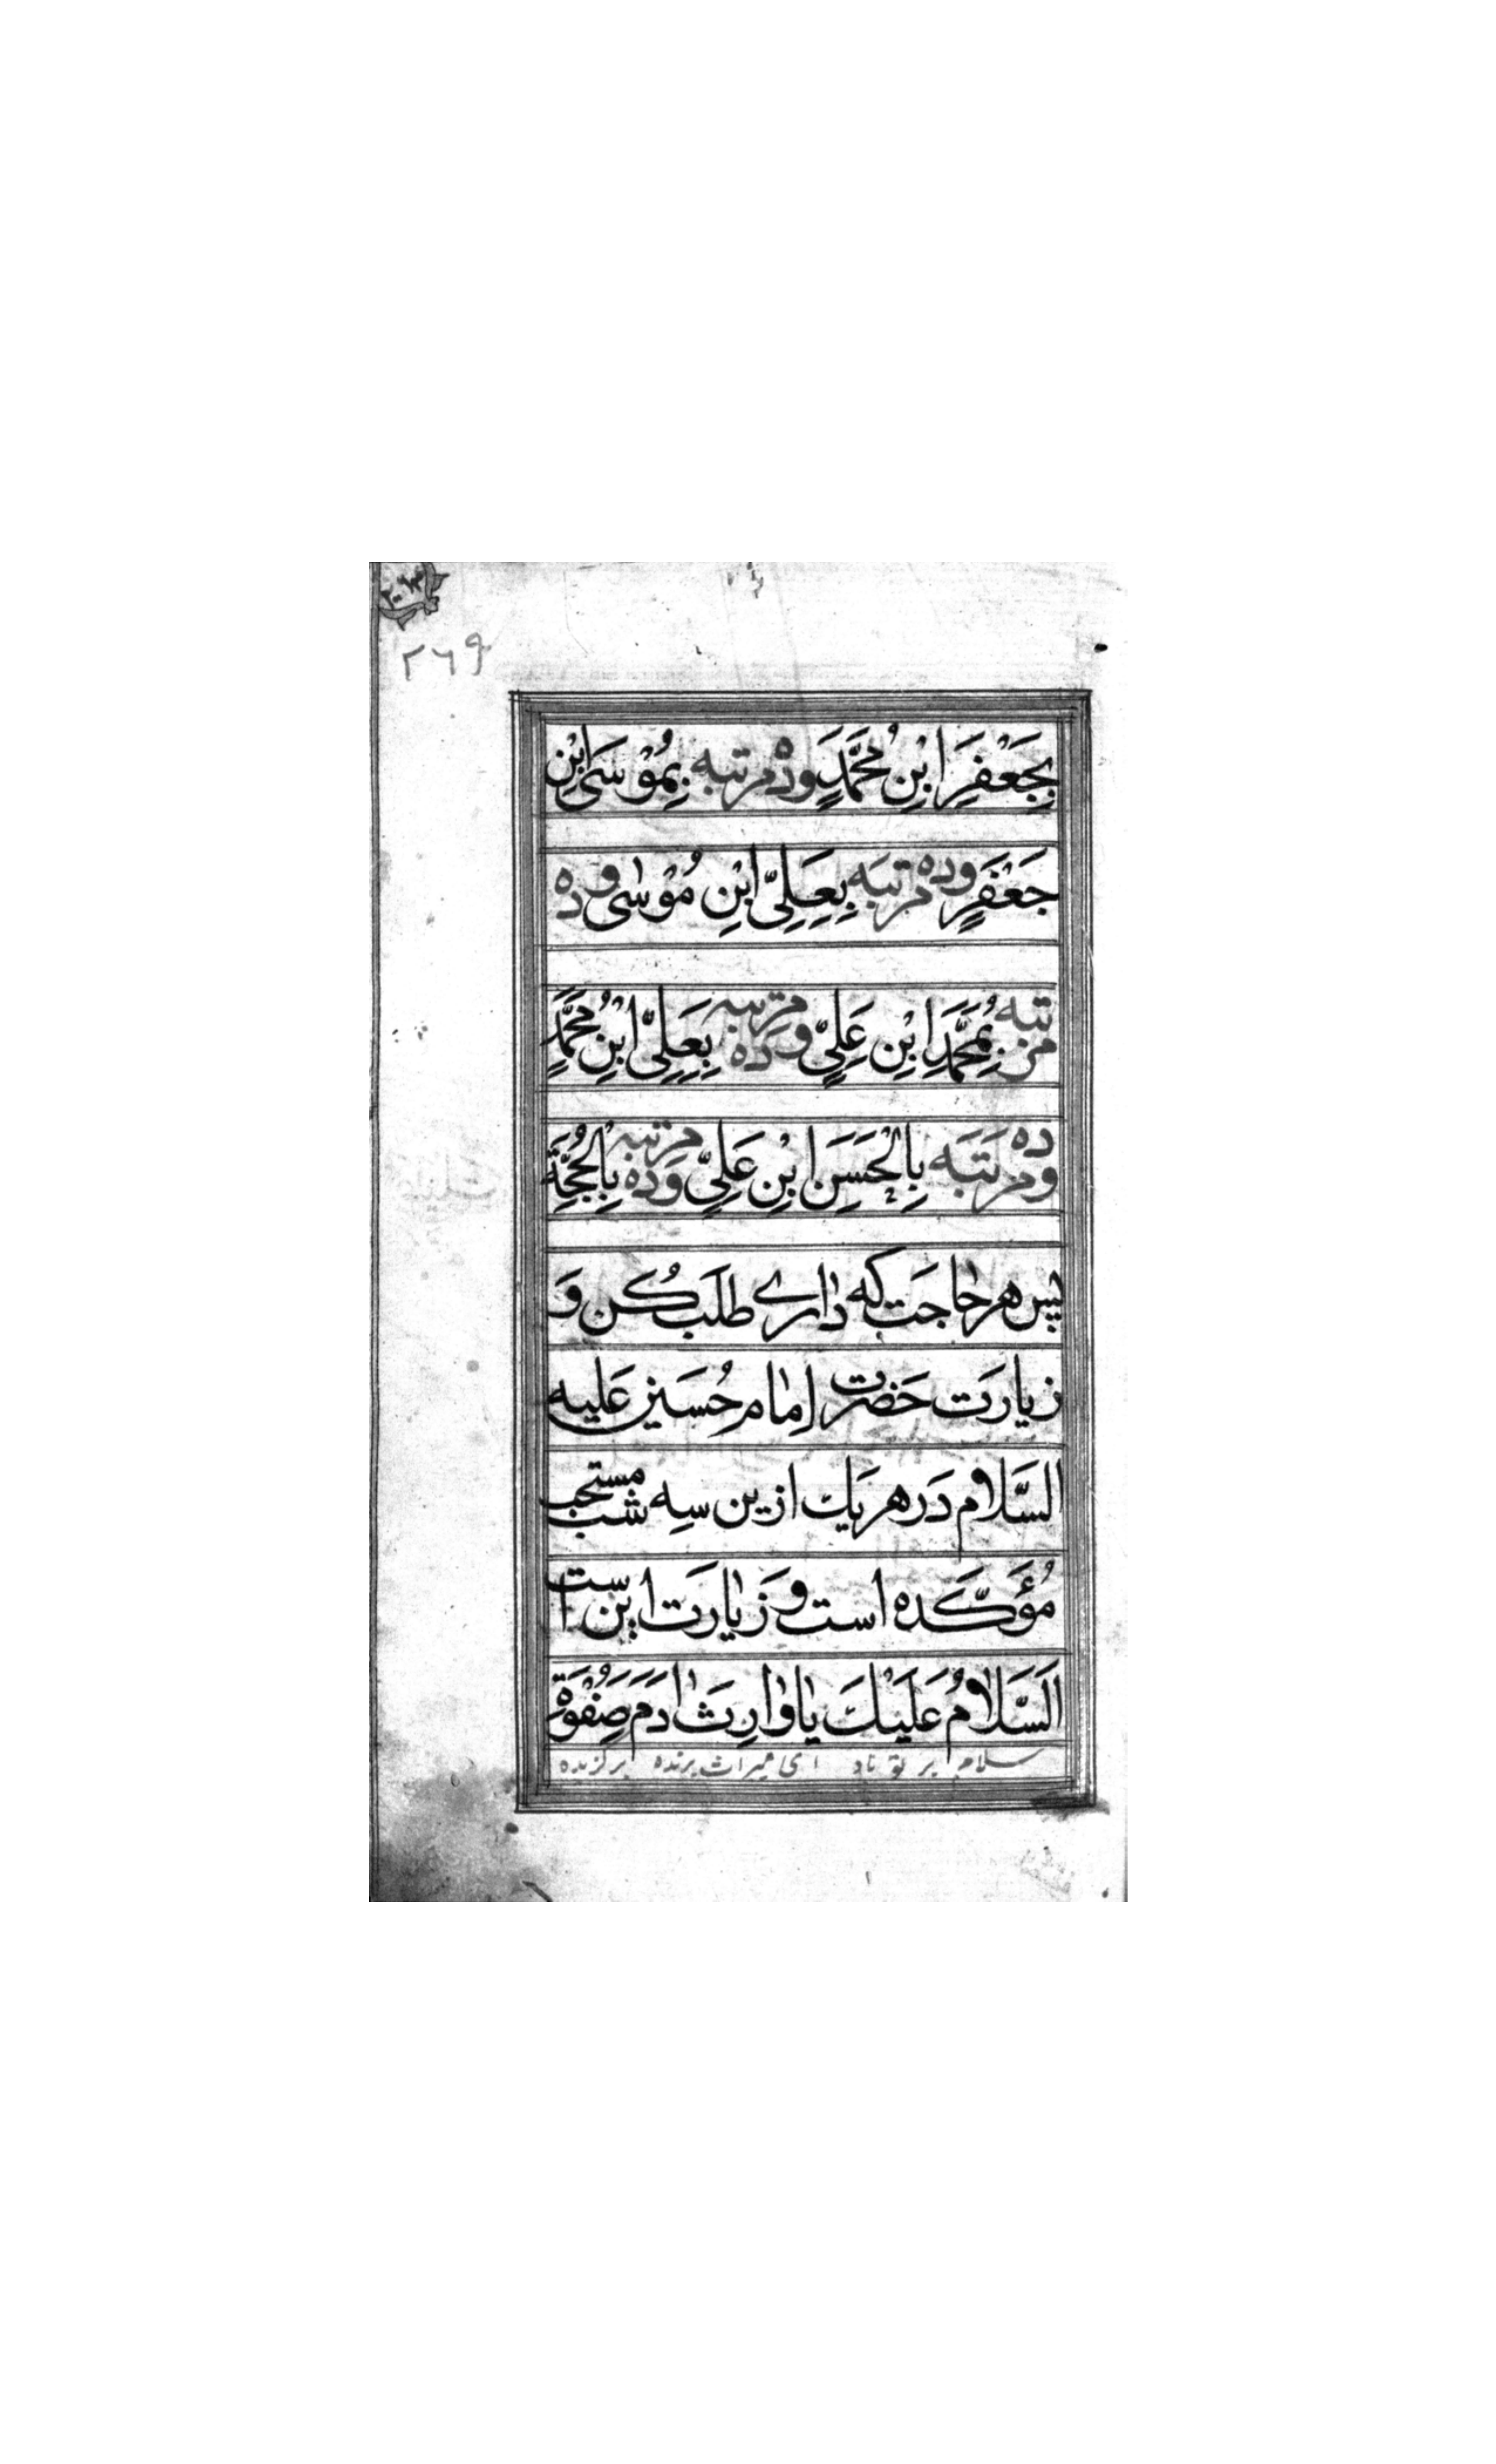 ٢٦٩
بِجَعْفَرِ ابْنِ مُحَمَّدٍ وده مرتبه بِمُوْسَى ابْنِ
جَعْفَرٍ وده مرتبَه بِعَلِيِّ ابْنِ مُوْسٰى و ده
مرتبه بِمُحَمَّدِ ابْنِ عَلِيٍّ و ده مرتبه بِعَلِيِّ ابْنِ مُحَمَّدٍ
و ده مرتَبَه بِالْحَسَنِ ابْنِ عَلِيٍّ وَده مرتبه بِالْحُجَّةِ
پس هر حٰاجَت كه دٰارے طلَب كُن وَ
زيارَت حَضرَت اِمٰام حُسَين عَليه
السَّلام دَر هر يَك ازين سِه شب مستحب
مُؤَكَّده است و زَيٰارَت اين است
اَلسَّلَامُ عَلَيْكَ يٰا وٰارِثَ اٰدَمَ صَفْوَةِ
سلام بر تو باد اى ميراث برنده برگزيده